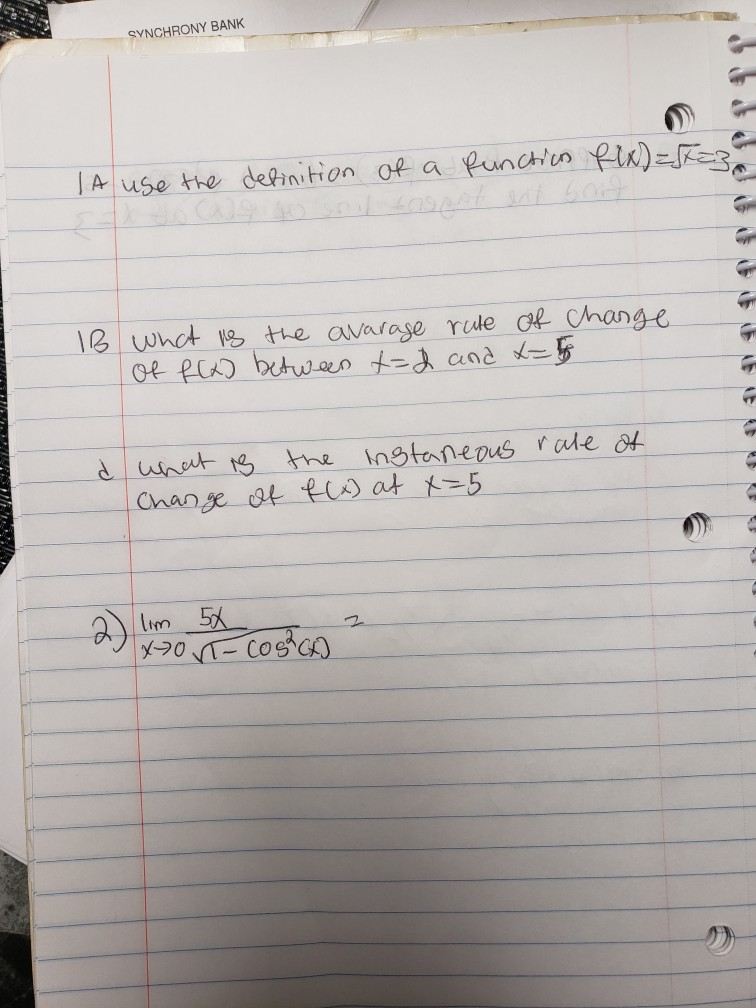 SYNCHRONY BANK
1A use the definition of a function f(x)=√x=3
1B what is the avarage rate of change
of f(x) between x=2 and x=5
d what is the instaneous rate of
change of f(x) at x=5
2) lim 5x =
x→0 √1-cos²(x)